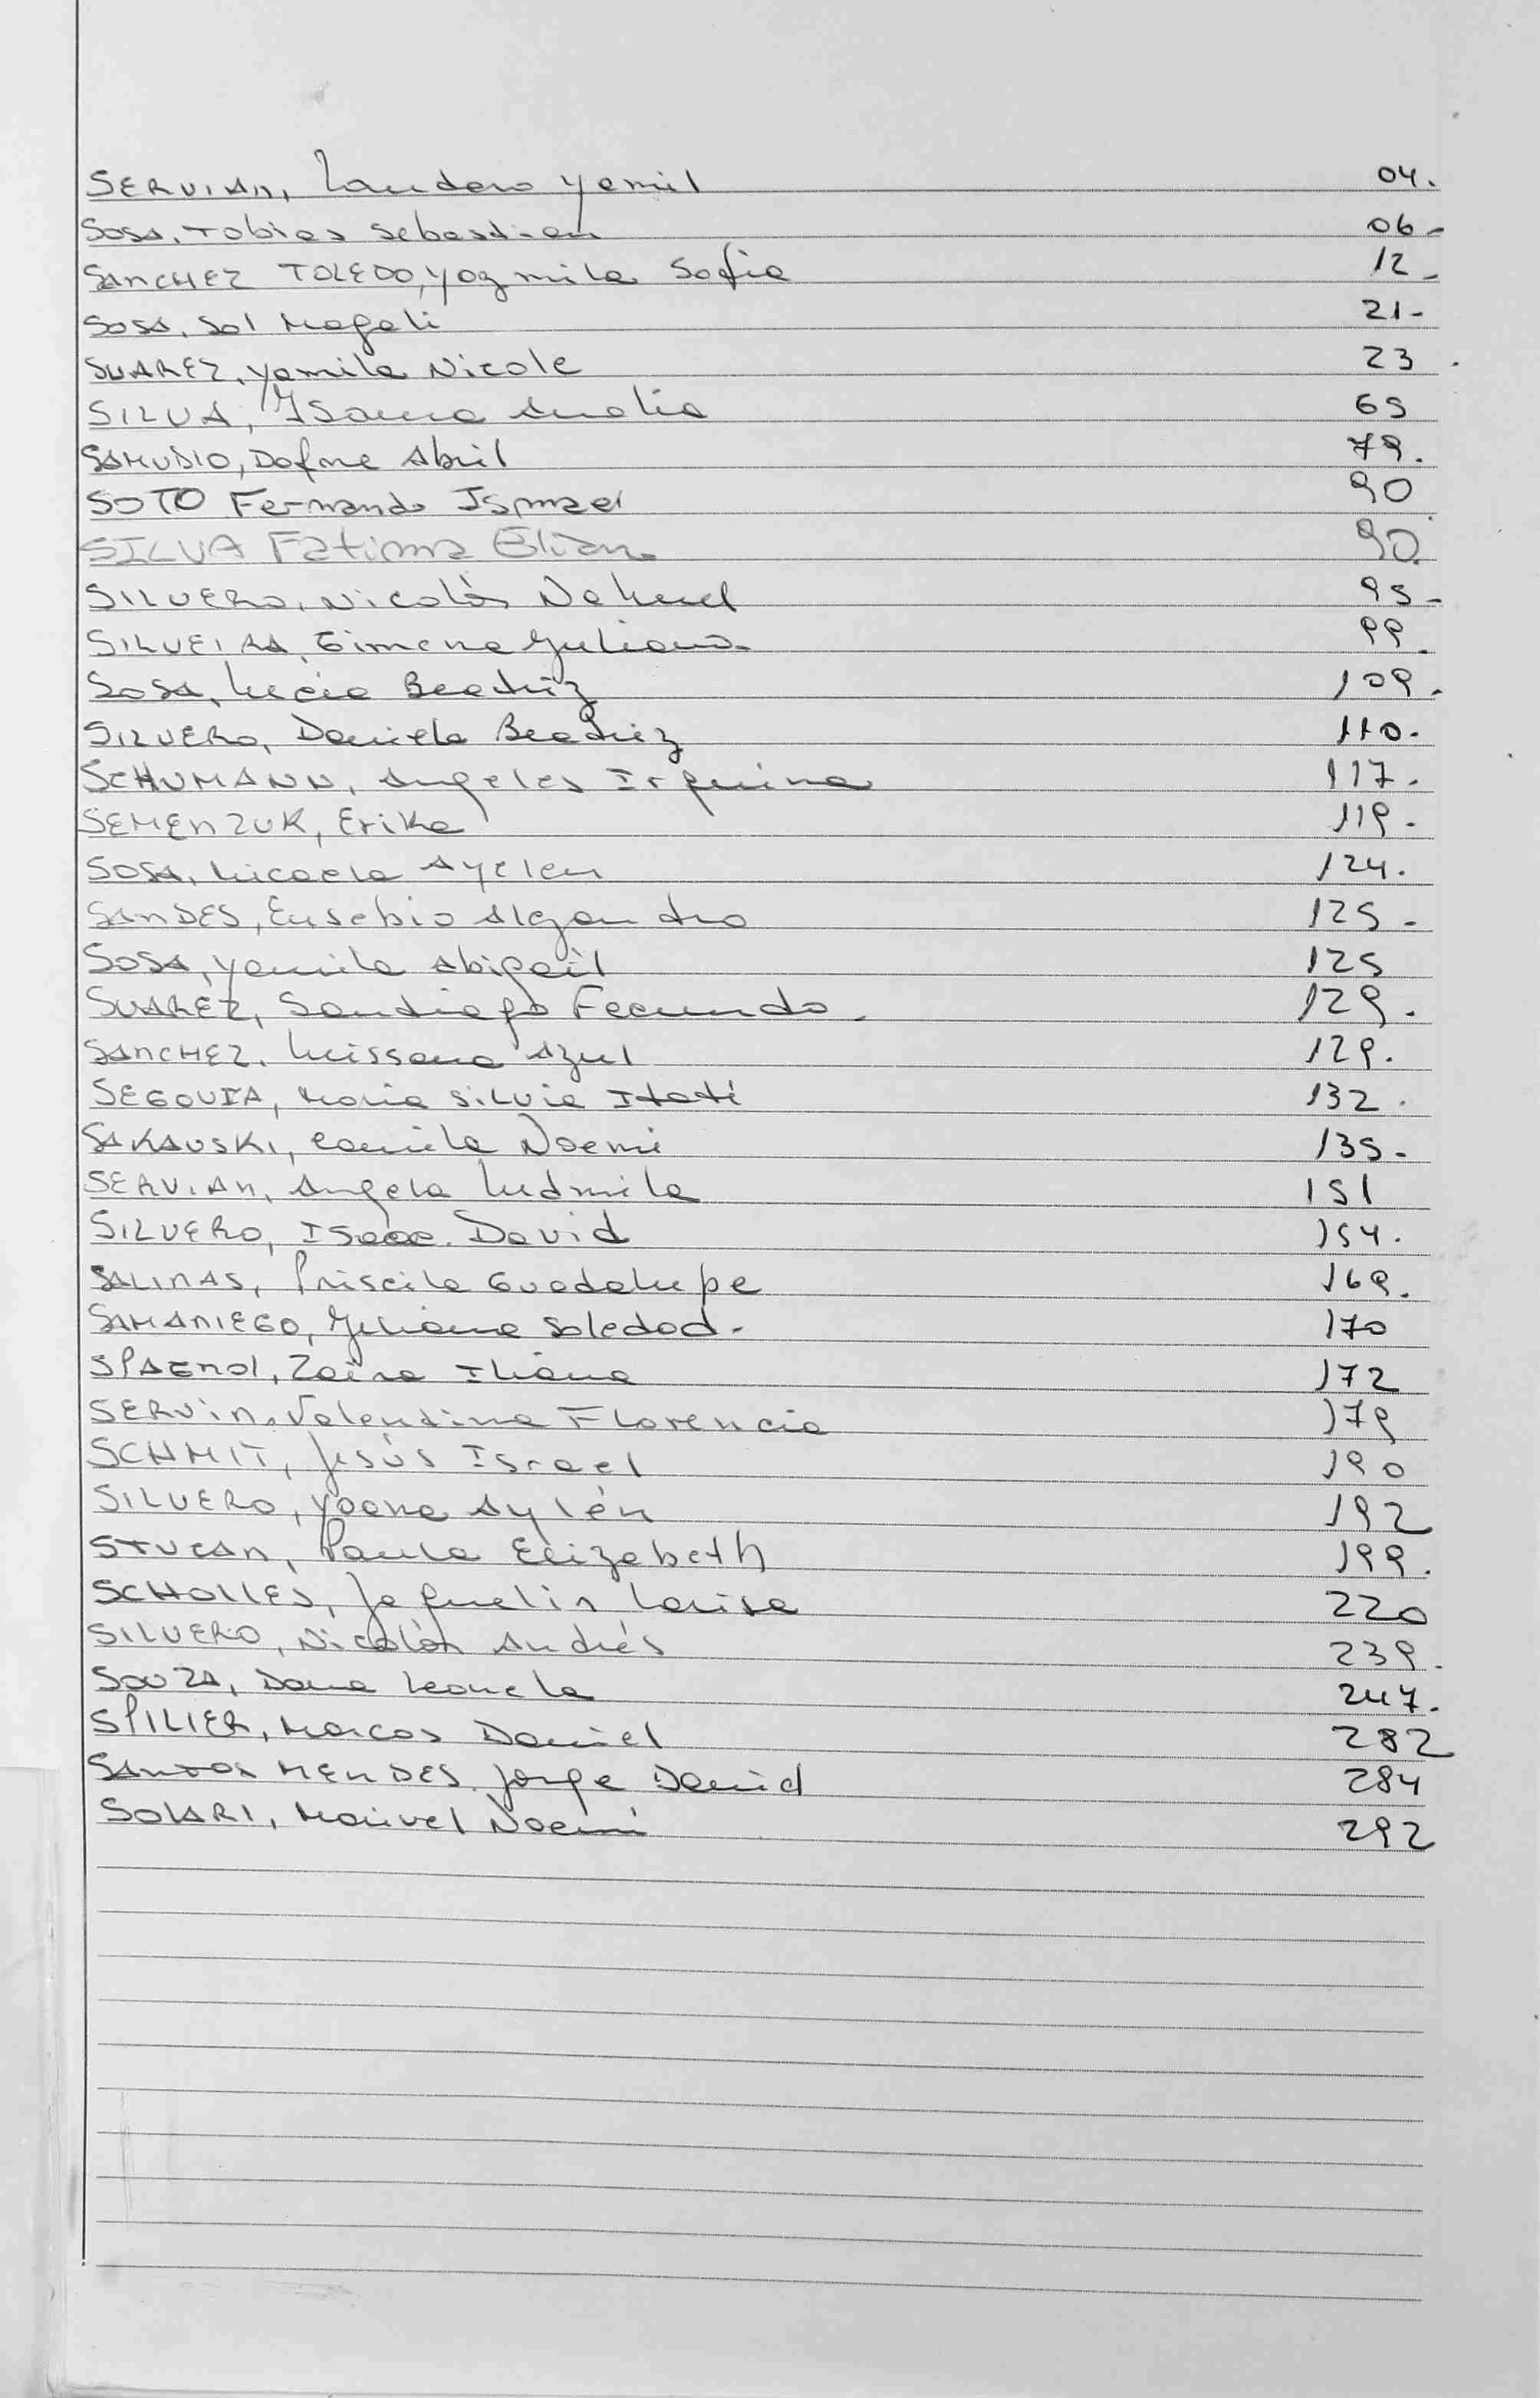 SERVIAN, Landero Yamil 04.
SOSA, Tobias Sebastian 06-
SANCHEZ TOLEDO, Yazmila Sofia 12-
SOSA, Sol Magali 21-
SUAREZ, Yamila Nicole 23
SILVA, Analia 65
SAMUDIO, Dafne Abril 79.
SOTO Fernando Ismael 90
SILVA Fatima Elian 90.
SILVERO, Nicolás Nahuel 95-
SILVEIRA, Gimena Juliana- 99.
SOSA, Lucia Beatriz 109.
SILVERO, Daniela Beatriz 110.
SCHUMANN, Angeles 117.
SEMENZUK, Erika 119.
SOSA, Micaela Ayelen 124.
SANDES, Eusebio Alejandro 125-
SOSA, Yamila Abigail 125
SUAREZ, Santiago Facundo. 129.
SANCHEZ, Luissana Azul 129.
SEGOVIA, Maria Silvia Itati 132.
SAKAUSKI, Camila Noemi 135-
SERVIAN, Angela Ludmila 151
SILVERO, Isaac David 154.
SALINAS, Priscila Guadalupe 169.
SAMANIEGO, Juliana Soledad- 170
SPAGNOL, Zaira Iliana 172
SERVIN, Valentina Florencia 179
SCHMIT, Jesús Israel 190
SILVERO, Yoana Aylén 192
STUCAN, Paula Elizabeth 199.
SCHOLLES, Jaquelin Larisa 220
SILVERO, Nicolás Andrés 239.
SOUZA, Dana Leonela 247.
SPILIER, Marcos Daniel 282
SANTOS MENDES, Jorge David 284
SOLARI, Marivel Noemi 292